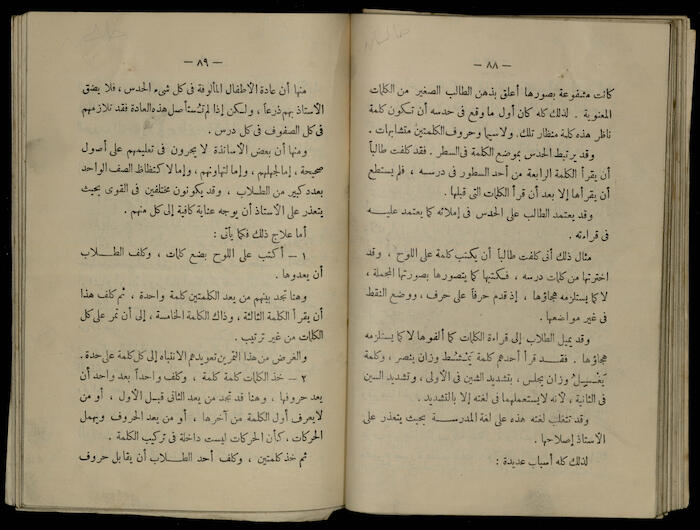 — ٨٨ —
كانت مشفوعة بصورها أعلق بذهن الطالب الصغير من الكلمات
المعنوية . لذلك كله كان أول ما وقع في حدسه أن تكون كلمة
ناظر هذه كلمة منظار تلك . ولا سيما وحروف الكلمتين متشابهات .
وقد يرتبط الحدس بموضع الكلمة في السطر . فقد كلفت طالباً
أن يقرأ الكلمة الرابعة من أحد السطور في درسه ، فلم يستطع
أن يقرأها إلا بعد أن قرأ الكلمات التي قبلها .
وقد يعتمد الطالب على الحدس في إملائه كما يعتمد عليه
في قراءته .
مثال ذلك أني كلفت طالباً أن يكتب كلمة على اللوح ، وقد
اخترتها من كلمات درسه ، فكتبها كما يتصورها بصورتها المجملة ،
لا كما يستلزمه هجاؤها ، إذ قدم حرفاً على حرف ، ووضع النقط
في غير مواضعها .
وقد يميل الطلاب إلى قراءة الكلمات كما ألفوها لا كما يستلزمه
هجاؤها . فقد قرأ أحدهم كلمة يَمْتَشط وزان ينصر ، وكلمة
يَغْسِل وزان يجلس ، بتشديد الشين في الأولى ، وتشديد السين
في الثانية ، لأنه لا يستعملهما في لغته إلا بالتشديد .
وقد تتغلب لغته هذه على لغة المدرسة بحيث يتعذر على
الأستاذ إصلاحها .
لذلك كله أسباب عديدة :
— ٨٩ —
منها أن عادة الأطفال المألوفة في كل شيء الحدس ، فلا يضق
الأستاذ بهم ذرعاً ، ولكن إذا لم تُستأصل هذه العادة فقد تلازمهم
في كل الصفوف في كل درس .
ومنها أن بعض الأساتذة لا يجرون في تعليمهم على أصول
صحيحة ، إما لجهلهم ، وإما لتهاونهم ، وإما لاكتظاظ الصف الواحد
بعدد كبير من الطلاب ، وقد يكونون مختلفين في القوى بحيث
يتعذر على الأستاذ أن يوجه عناية كافية إلى كل منهم .
أما علاج ذلك فكما يأتي :
١ – أكتب على اللوح بضع كلمات ، وكلف الطلاب
أن يعدوها .
وهنا تجد بينهم من يعد الكلمتين كلمة واحدة ، ثم كلف هذا
أن يقرأ الكلمة الثالثة ، وذاك الكلمة الخامسة ، إلى أن تمر على كل
الكلمات من غير ترتيب .
والغرض من هذا التمرين تعويدهم الانتباه إلى كل كلمة على حدة .
٢ – خذ الكلمات كلمة كلمة ، وكلف واحداً بعد واحد أن
يعد حروفها ، وهنا قد تجد من يعد الثاني قبل الأول ، أو من
لا يعرف أول الكلمة من آخرها ، أو من يعد الحروف ويهمل
الحركات ، كأن الحركات ليست داخلة في تركيب الكلمة .
ثم خذ كلمتين ، وكلف أحد الطلاب أن يقابل حروف